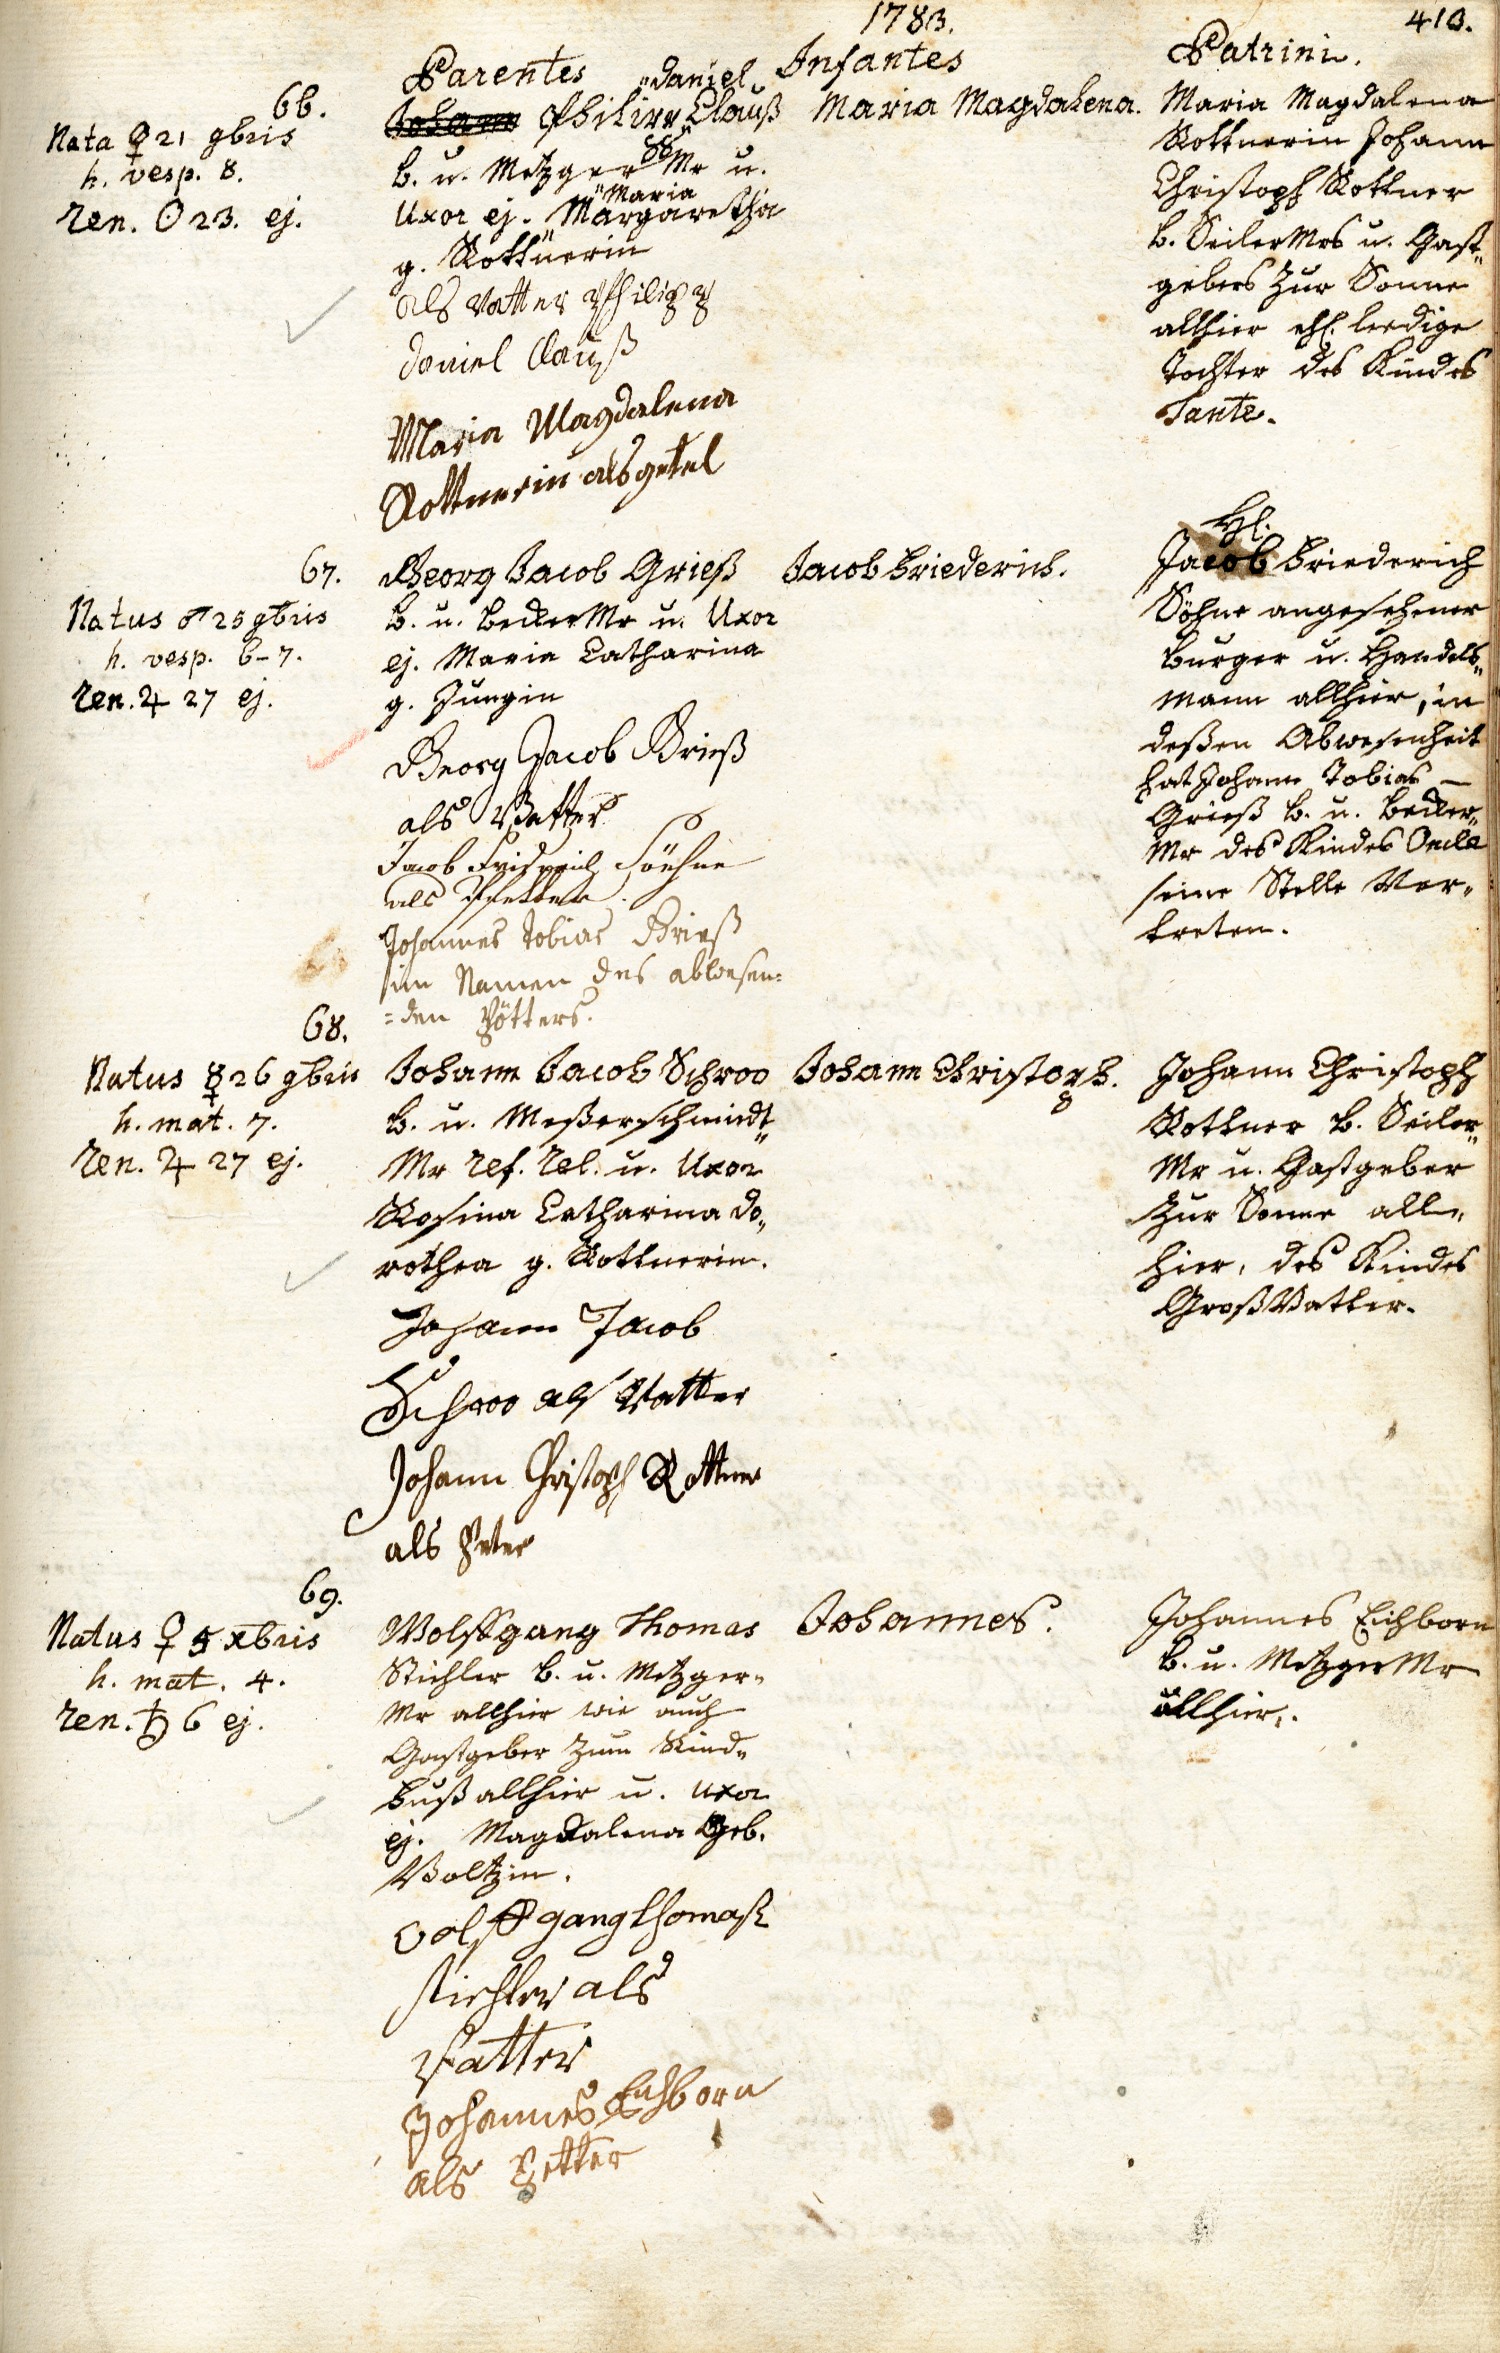 1783.
413.
Parentes
Infantes
Patrini.
66.
Nata ♀ 21 9bris
h. vesp. 8.
ren. ☉ 23. ej.
Daniel
Johann Philipp Clauß
B. u. Metzger Mr u.
Maria
Uxor ej. Margaretha
g. Rottnerin
als Vatter Philipp
Daniel Clauß
Maria Magdalena
Rottnerin als getel
Maria Magdalena.
Maria Magdalena
Rottnerin Johann
Christoph Rottner
b. Seiler Mrs u. Gast„
gebers zur Sonne
allhier ehl. ledige
Tochter des Kindes
Tante.
67.
Natus ♂ 25 9bris
h. vesp. 6-7.
ren. ♃ 27 ej.
Georg Jacob Grieß
B. u. Becker Mr u. Uxor
ej. Maria Catharina
g. Jungin
Georg Jacob Grieß
als Vatter
Jacob Fridrich Söhne
als Pfetter.
Johannes Tobias Grieß
im Namen des abwesen=
=den Pötters.
Jacob Friederich.
Hl.
Jacob Friederich
Söhne angesehener
Burger u. Handels„
mann allhier, in
deßen Abwesenheit
hat Johann Tobias –
Grieß B. u. Becker„
Mr des Kindes Oncle
seine Stelle Ver„
tretten.
68.
Natus ☿ 26 9bris
h. mat. 7.
ren. ♃ 27 ej.
Johann Jacob Schroo
B. u. Meßerschmidt„
Mr ref. rel. u. Uxor
Rosina Catharina Do„
rothea g. Rottnerin.
Johann Jacob
Schroo als Vatter
Johann Christoph Rottner
als Peter
Johann Christoph.
Johann Christoph
Rottner B. Seiler„
Mr u. Gastgeber
zur Sonne all„
hier, des Kindes
Groß Vatter.
69.
Natus ♀ 5 Xbris
h. mat. 4.
ren. ♄ 6 ej.
Wolffgang Thomas
Stichler B. u. Metzger„
Mr allhier wie auch
Gastgeber zum Rind„
fuß allhier u. uxor
ej. Magdalena Geb.
Voltzin.
Volffgang Thomaß
Stichler als
Vatter
Johannes Eichborn
als Petter
Johannes.
Johannes Eichborn
B. u. Metzger Mr
allhier.